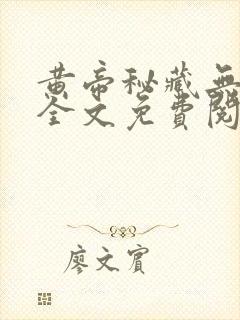 黄帝秘藏無
全文免費閱
廖文賓